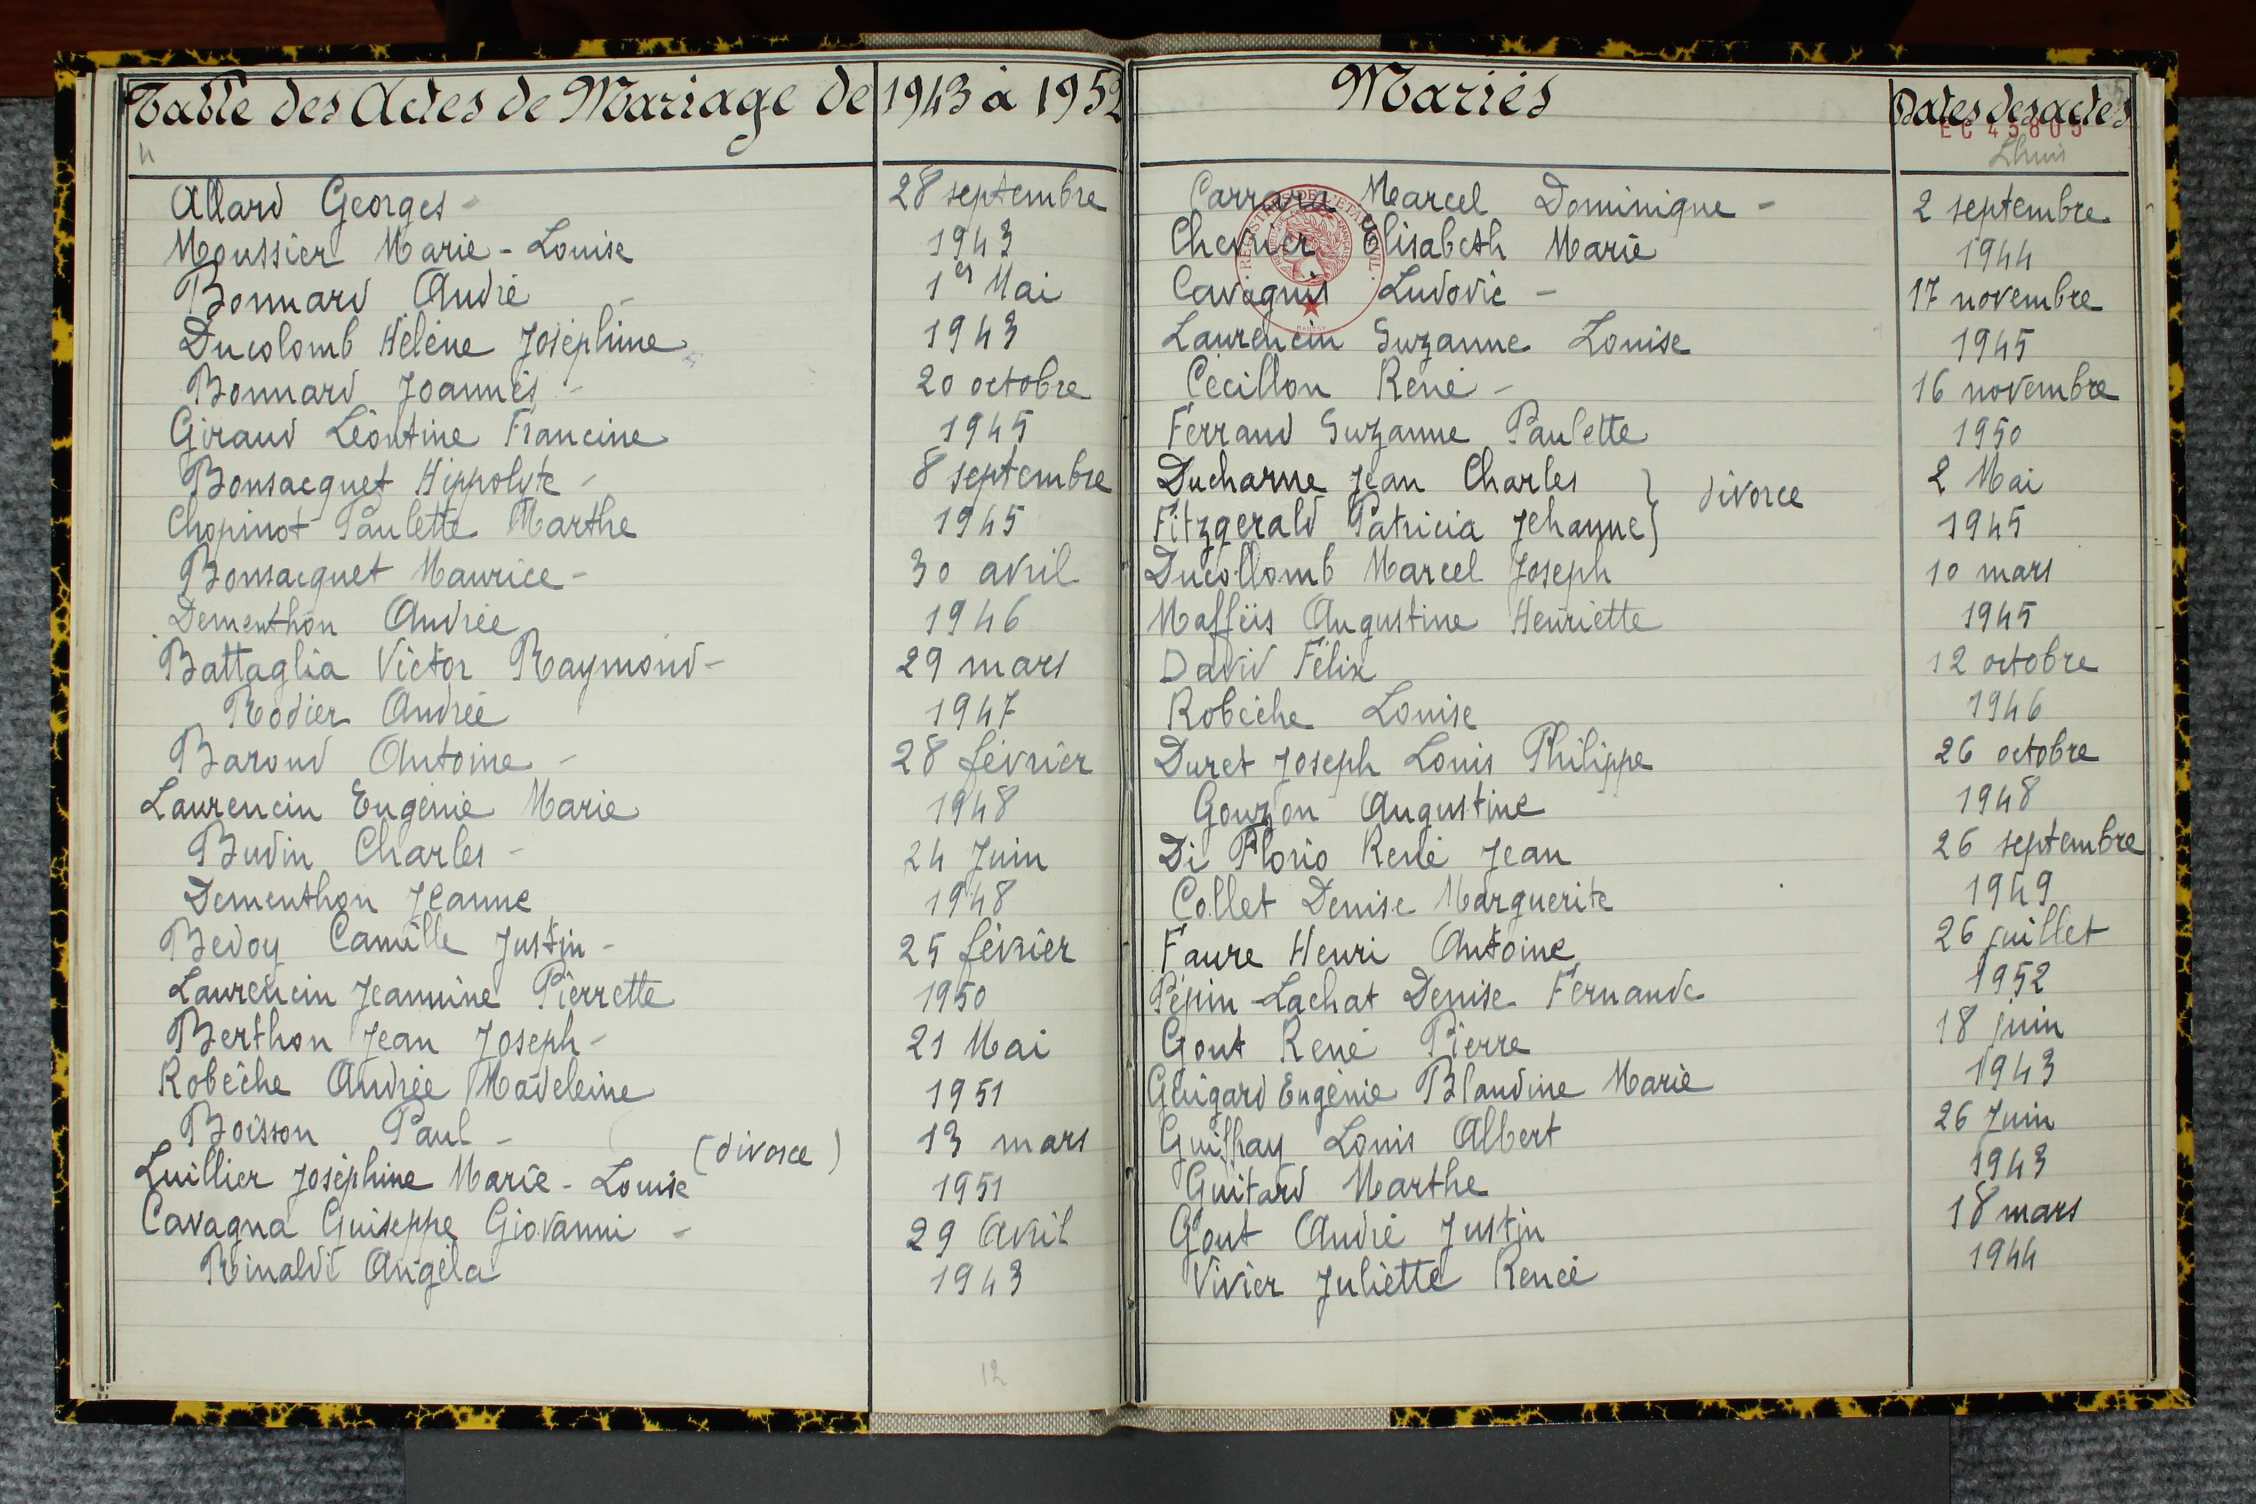 Table des Actes de Mariage de 1943 à 1952
Allard Georges - 28 septembre
Moussier Marie-Louise 1943
Bonnard André - 1er Mai
Ducolomb Hélène Joséphine 1943
Bonnard Joannès - 20 octobre
Giraud Léontine Francine 1945
Bonsacquet Hippolyte - 8 septembre
Chopinot Paulette Marthe 1945
Bonsacquet Maurice - 30 avril
Dementhon Andrée 1946
Battaglia Victor Raymond - 29 mars
Rodier Andrée 1947
Baroud Antoine - 28 février
Laurencin Eugénie Marie 1948
Budin Charles - 24 Juin
Dementhon Jeanne 1948
Bedoy Camille Justin - 25 février
Laurencin Jeannine Pierrette 1950
Berthon Jean Joseph - 21 Mai
Robèche Andrée Madeleine 1951
Boisson Paul - 13 mars
Luillier Joséphine Marie-Louise (divorce) 1951
Cavagna Guiseppe Giovanni - 29 Avril
Rinaldi Angéla 1943
12
Mariés Dates des actes
EC 45805
Lhuis
Carrara Marcel Dominique - 2 septembre
Chevrier Elisabeth Marie 1944
Cavagnis Ludovic - 17 novembre
Laurencin Suzanne Louise 1945
Cécillon René - 16 novembre
Ferrand Suzanne Paulette 1950
Ducharne Jean Charles } divorce 2 Mai
Fitzgerald Patricia Jehanne } 1945
Ducollomb Marcel Joseph 10 mars
Maffëis Augustine Henriette 1945
David Félix 12 octobre
Robèche Louise 1946
Duret Joseph Louis Philippe 26 octobre
Gouzon Augustine 1948
Di Florio René Jean 26 septembre
Collet Denise Marguerite 1949
Faure Henri Antoine 26 juillet
Pépin-Lachat Denise Fernande 1952
Gout René Pierre 18 juin
Guigard Eugénie Blandine Marie 1943
Guilhay Louis Albert 26 Juin
Guitard Marthe 1943
Gout André Justin 18 mars
Vivier Juliette Renée 1944